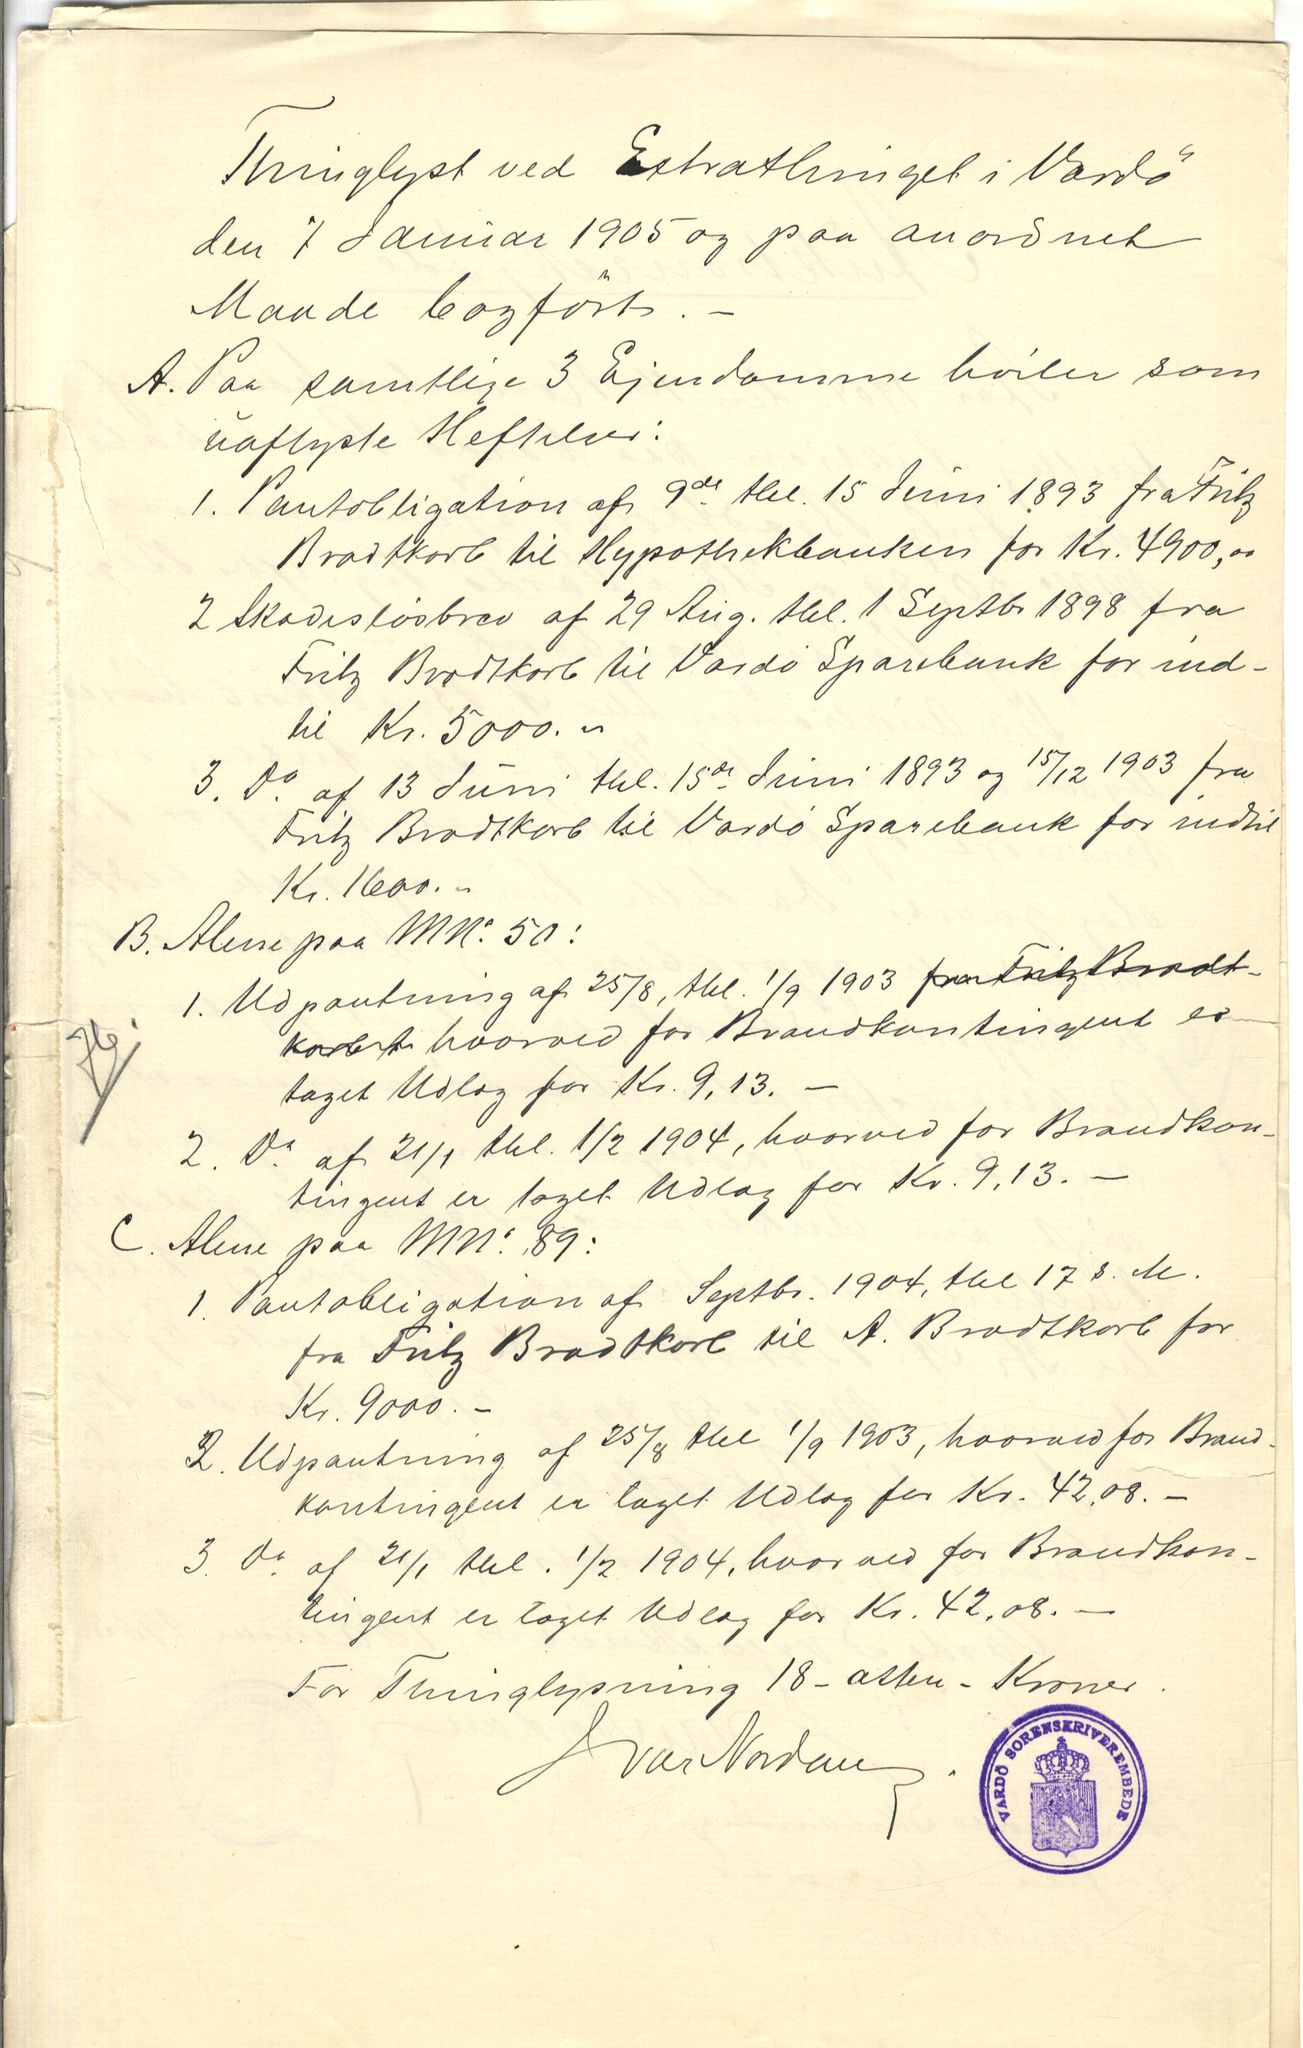 Thinglyst ved Extrathinget i Vardö
den 7 Januar 1905 og paa anordnet
Maade bogført. -
A. Paa samtlige 3 Ejendomme hviler som
uaflyste Heftelser:
1. Pantobligation af 9de thl. 15 Juni 1893 fra Fritz
Brodtkorb til Hypothekbanken for Kr. 4900,00
2 Skadesløsbrev af 29 Aug. thl. 1 Septbr 1898 fra
Fritz Brodtkorb til Vardö Sparebank for ind-
til Kr. 5000.-
3. Do. af 13 Juni thl. 15de Juni 1893 og 15/12 1903 fra
Fritz Brodtkorb til Vardö Sparebank for indtil
Kr. 1600.-
B. Alene paa M No. 50:
1. Udpantning af 25/8, thl. 1/9 1903 fra Fritz Brodt-
korb t hvorved for Brandkontingent er
taget Udlæg for Kr. 9,13. -
2. Do. af 21/1 thl. 1/2 1904, hvorved for Brandkon-
tingent er taget Udlæg for Kr. 9,13. -
C. Alene paa M No. 89:
1. Pantobligation af Septbr. 1904, thl 17 s. M.
fra Fritz Brodtkorb til A. Brodtkorb for
Kr. 9000. -
2. Udpantning af 25/8 thl 1/9 1903, hvorved for Brand-
kontingent er taget Udlæg for Kr. 42,08. -
3. Do. af 21/1 thl. 1/2 1904, hvorved for Brandkon-
tingent er taget Udlæg for Kr. 42,08. -
For Thinglysning 18 - atten - Kroner.
Ivar Nordam.
VARDÖ SORENSKRIVEREMBEDE